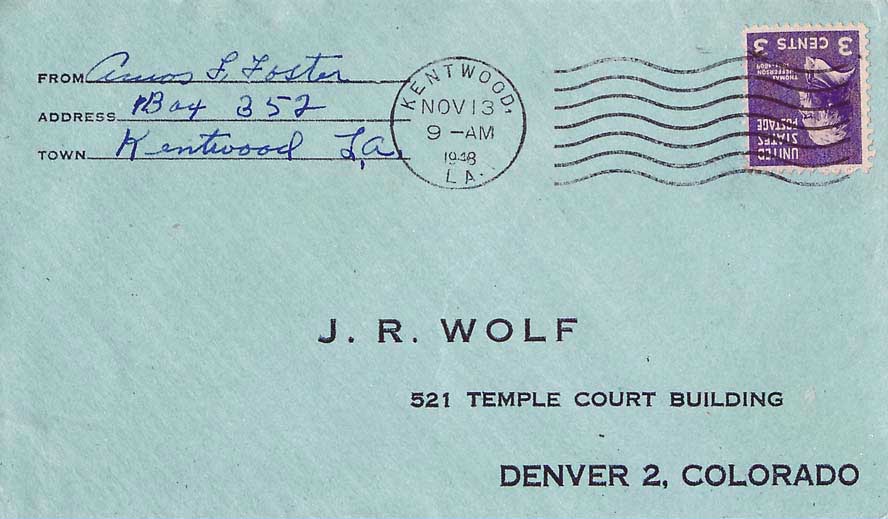 FROM Amos F. Foster
ADDRESS Box 352
TOWN Kentwood La.
KENTWOOD,
NOV 13
9 -AM
1948
LA.
3 CENTS 3
THOMAS
JEFFERSON
UNITED
STATES
POSTAGE
J. R. WOLF
521 TEMPLE COURT BUILDING
DENVER 2, COLORADO